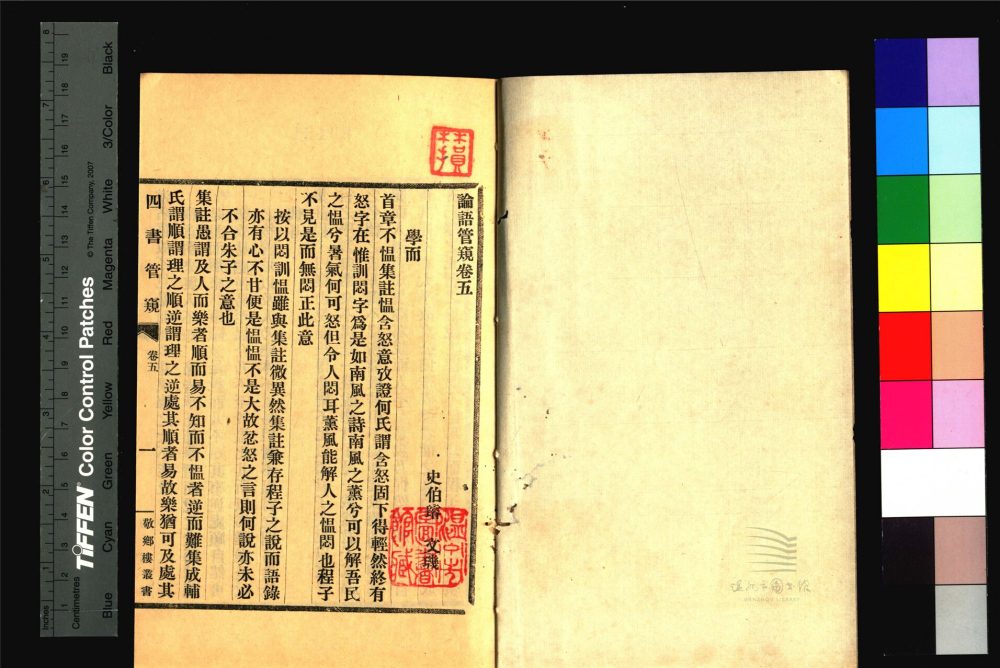 論語管窺卷五
史伯璿 文璣
學而
首章不慍集註慍含怒意攷證何氏謂含怒固下得輕然終有
怒字在惟訓悶字為是如南風之詩南風之薰兮可以解吾民
之慍兮暑氣何可怒但令人悶耳薰風能解人之慍悶也程子
不見是而無悶正此意
按以悶訓慍雖與集註微異然集註兼存程子之說而語錄
亦有心不甘便是慍慍不是大故忿怒之言則何說亦未必
不合朱子之意也
集註愚謂及人而樂者順而易不知而不慍者逆而難集成輔
氏謂順謂理之順逆謂理之逆處其順者易故樂猶可及處其
四書管窺 卷五 一 敬鄉樓叢書
溫州市圖書館藏
溫州市圖書館
WENZHOU LIBRARY
TIFFEN Color Control Patches
© The Tiffen Company, 2007
Blue Cyan Green Yellow Red Magenta White 3/Color Black
Inches
1 2 3 4 5 6 7 8
Centimetres
1 2 3 4 5 6 7 8 9 10 11 12 13 14 15 16 17 18 19